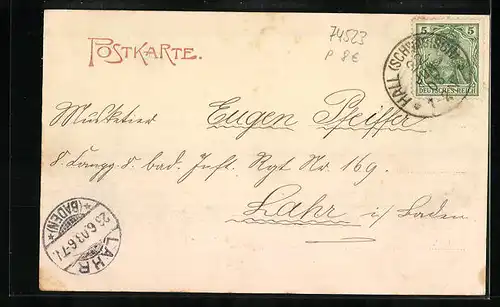 74523
P 8€
POSTKARTE.
5 5
DEUTSCHES REICH
HALL (SCHWÄBISCH)
Musketier Eugen Pfeiffer
8. Comp. 8. bad. Inft. Rgt Nr. 169.
Lahr i/ Baden
LAHR
23.6.03.6-7N.
* (BADEN) *